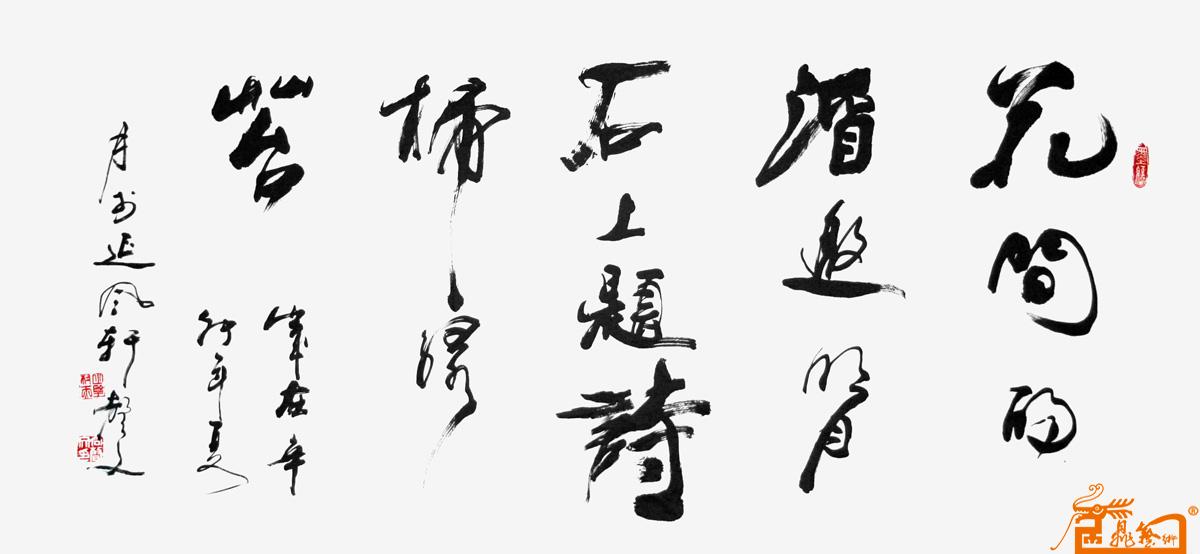 花間酌
酒邀明月
石上題詩
掃綠
苔
歲在辛
卯年夏
月於延風軒